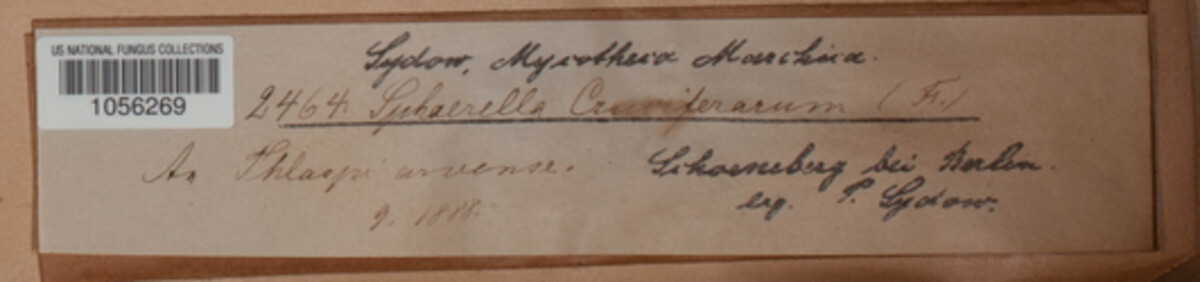 US NATIONAL FUNGUS COLLECTIONS
1056269
Sydow, Mycotheca Marchica.
2464. Sphaerella Cruciferarum (Fr.)
An Thlaspi arvense. Schoeneberg bei Berlin.
9. 1888. leg. P. Sydow.